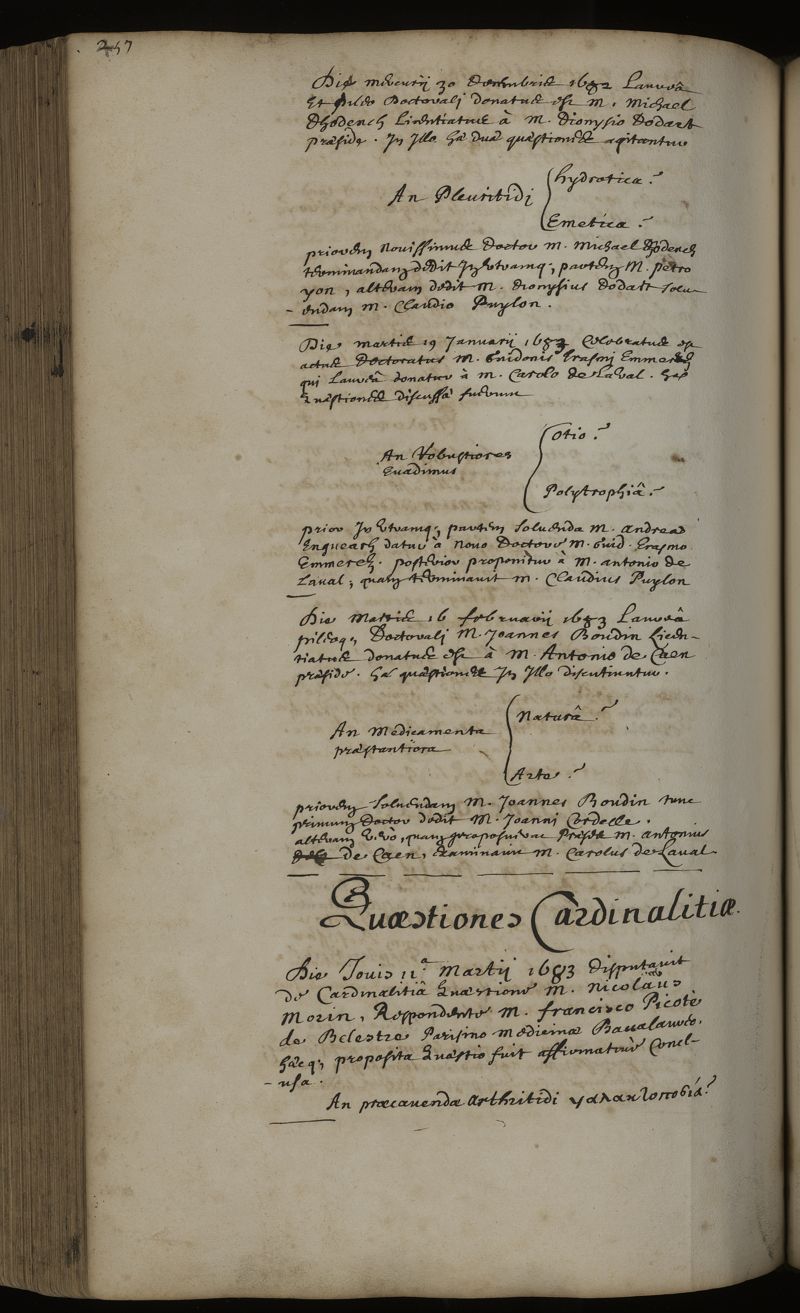 257
Die mercurij 30 decembris 1682 Laureâ
Et pileo Doctorali donatus est M. Michael
Thodench Licentiatus à M. Dionysio Dodart
præside. In Illo hæ duæ quæstiones agitantur
An Pleuritidi
hydrotica?
Emetica?
priorem Novissimus Doctor M. Michael Thodench
terminandam dedit In utramq; partem M. petro
yon, alteram dedit M. Dionysius Dodart solu-
-endam M. Claudio Puylon.
Die martis 19 Januarij 1683 Celebratus est
actus Doctoratus M. Guidonis Erasmi Emmerez
qui Laureâ donatur à M. Carolo de Laval. hæ
quæstiones discussæ fuerunt
An Robustiores
Evadimus
Otio?
Polytrophiâ?
prior In utramq; partem soluenda M. Andreas
Enguehard datur à novo Doctore M. Guid. Erasmo
Emmerez. posterior proponitur à M. antonio de
Laval; quam terminavit M. Claudius Puylon
Die Martis 16 februarij 1683 Laureâ
pileoq; Doctorali M. Joannes Boudin Licen-
tiatus donatus est à M. Antonio de Caen
præside. hæ quæstiones In Illo discutiuntur.
An Medicamenta
præstantiora
Naturâ?
Arte?
priorem soluendam M. Joannes Boudin tunc
primum Doctor dedit M. Joanni Cordelle.
alteram verò, quam proposuerat Præses M. antonius
de Caen, Examinavit M. Carolus de Laval.
Quæstiones Cardinalitiæ.
Die Jouis 11.a Martij 1683 disputavit
de Cardinalitiâ Quæstione M. nicolaüs
Morin, Respondente M. francisco Picoté
de Belestre Parisino medicinæ Baccalaureo.
hæcq; proposita Quæstio fuit affirmativè Concl-
-usa.
An præcavendæ Arthritidi γαλακτοποσία?